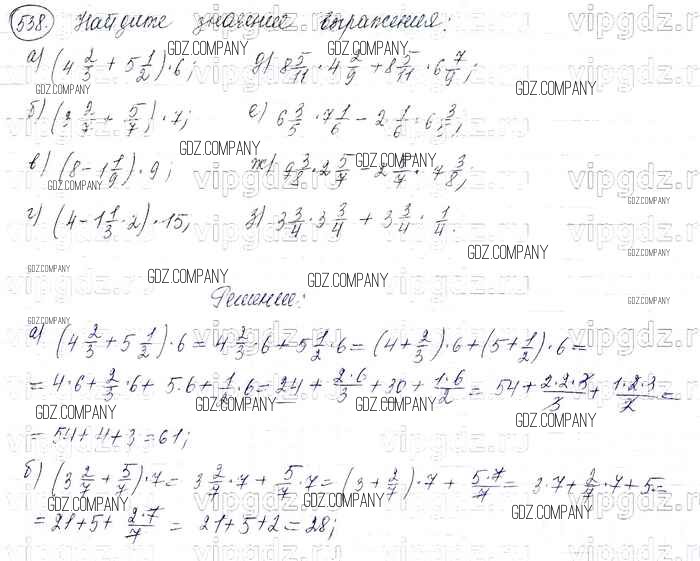 538. Найдите значение выражения:
а) (4 2/3 + 5 1/2) · 6; д) 8 5/11 · 4 2/9 + 8 5/11 · 6 7/9;
б) (3 2/7 + 5/7) · 7; е) 6 3/5 · 7 1/6 - 2 1/6 · 6 3/5;
в) (8 - 1 1/9) · 9; ж) 9 3/8 · 2 5/7 - 2 5/7 · 7 3/8;
г) (4 - 1 1/3 · 2) · 15; з) 3 3/4 · 3 3/4 + 3 3/4 · 1/4.
Решение:
а) (4 2/3 + 5 1/2) · 6 = 4 2/3 · 6 + 5 1/2 · 6 = (4 + 2/3) · 6 + (5 + 1/2) · 6 =
= 4 · 6 + 2/3 · 6 + 5 · 6 + 1/2 · 6 = 24 + 2·6/3 + 30 + 1·6/2 = 54 + 2·2·3/3 + 1·2·3/2 =
= 54 + 4 + 3 = 61;
б) (3 2/7 + 5/7) · 7 = 3 2/7 · 7 + 5/7 · 7 = (3 + 2/7) · 7 + 5·7/7 = 3 · 7 + 2/7 · 7 + 5 =
= 21 + 5 + 2·7/7 = 21 + 5 + 2 = 28;
GDZ.COMPANY
vipgdz.ru